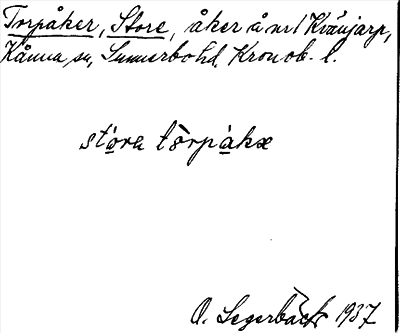 Torpåker, Store, åker å nr 1 Kvänjarp,
Kånna sn, Sunnerbo hd, Kronob. l.
stora torpåkæ
O. Segerbäck 1937